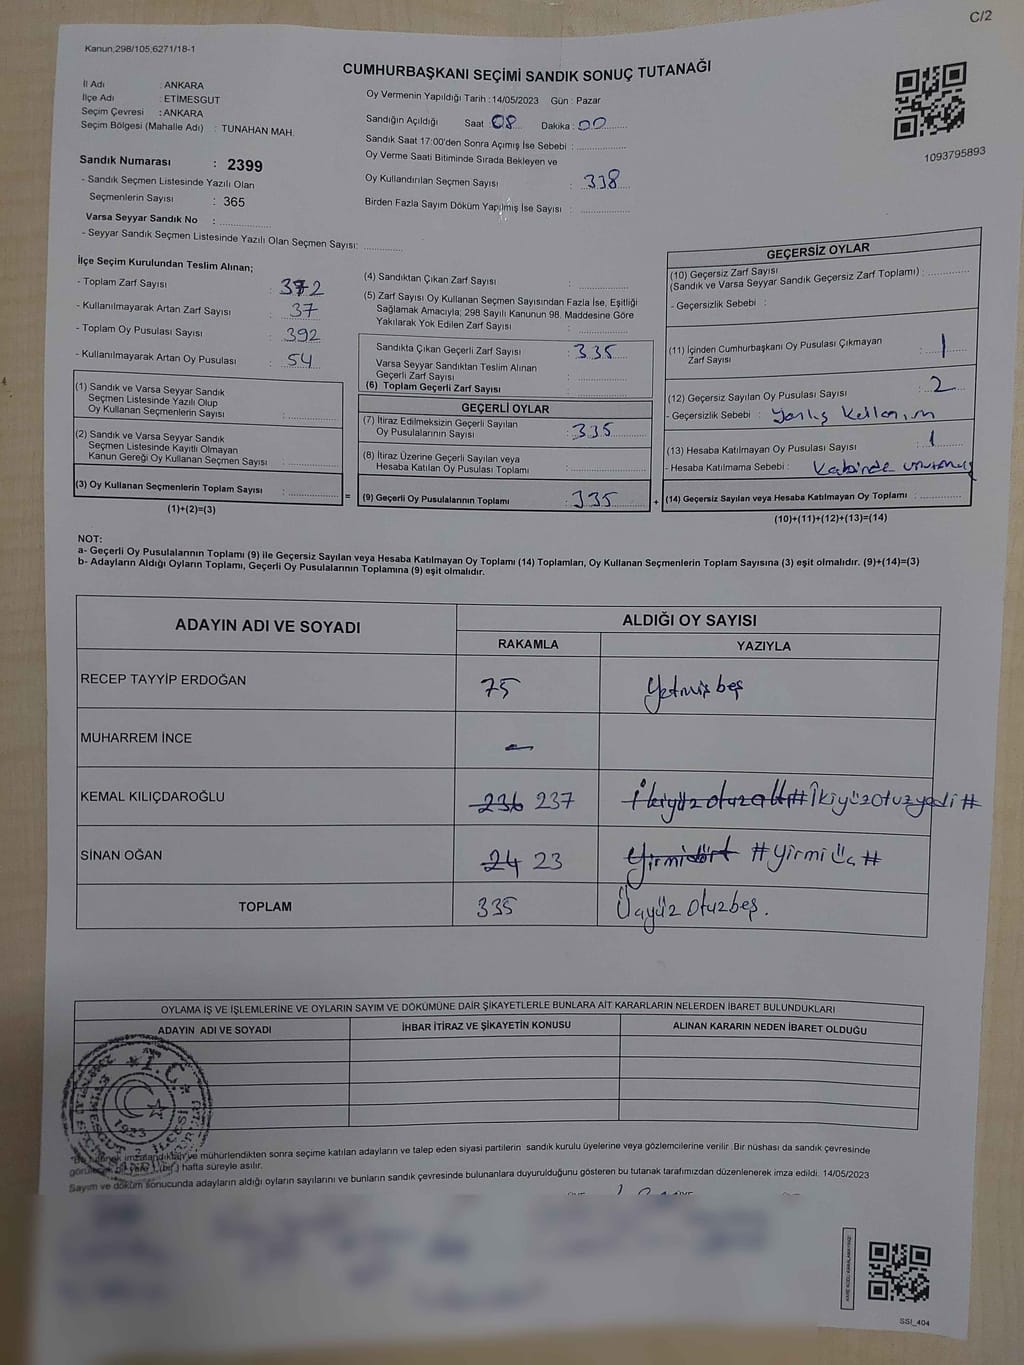 C/2
Kanun,298/105,6271/18-1
CUMHURBAŞKANI SEÇİMİ SANDIK SONUÇ TUTANAĞI
İl Adı : ANKARA
İlçe Adı : ETİMESGUT
Seçim Çevresi : ANKARA
Seçim Bölgesi (Mahalle Adı) : TUNAHAN MAH.
Sandık Numarası : 2399
- Sandık Seçmen Listesinde Yazılı Olan
Seçmenlerin Sayısı : 365
Varsa Seyyar Sandık No : ............
- Seyyar Sandık Seçmen Listesinde Yazılı Olan Seçmen Sayısı: ............
Oy Vermenin Yapıldığı Tarih : 14/05/2023 Gün : Pazar
Sandığın Açıldığı Saat 08 Dakika : 00
Sandık Saat 17:00'den Sonra Açımış İse Sebebi : ............
Oy Verme Saati Bitiminde Sırada Bekleyen ve
Oy Kullandırılan Seçmen Sayısı : 338
Birden Fazla Sayım Döküm Yapılmış İse Sayısı : ............
1093795893
İlçe Seçim Kurulundan Teslim Alınan;
- Toplam Zarf Sayısı : 372
- Kullanılmayarak Artan Zarf Sayısı : 37
- Toplam Oy Pusulası Sayısı : 392
- Kullanılmayarak Artan Oy Pusulası : 54
(1) Sandık ve Varsa Seyyar Sandık
Seçmen Listesinde Yazılı Olup
Oy Kullanan Seçmenlerin Sayısı : ............
(2) Sandık ve Varsa Seyyar Sandık
Seçmen Listesinde Kayıtlı Olmayan
Kanun Gereği Oy Kullanan Seçmen Sayısı : ............
(3) Oy Kullanan Seçmenlerin Toplam Sayısı : ............ =
(1)+(2)=(3)
(4) Sandıktan Çıkan Zarf Sayısı : ............
(5) Zarf Sayısı Oy Kullanan Seçmen Sayısından Fazla İse, Eşitliği
Sağlamak Amacıyla; 298 Sayılı Kanunun 98. Maddesine Göre
Yakılarak Yok Edilen Zarf Sayısı : ............
Sandıkta Çıkan Geçerli Zarf Sayısı : 335
Varsa Seyyar Sandıktan Teslim Alınan
Geçerli Zarf Sayısı : ............
(6) Toplam Geçerli Zarf Sayısı : ............
GEÇERLİ OYLAR
(7) İtiraz Edilmeksizin Geçerli Sayılan
Oy Pusulalarının Sayısı : 335
(8) İtiraz Üzerine Geçerli Sayılan veya
Hesaba Katılan Oy Pusulası Toplamı : ............
(9) Geçerli Oy Pusulalarının Toplamı : 335 +
GEÇERSİZ OYLAR
(10) Geçersiz Zarf Sayısı
(Sandık ve Varsa Seyyar Sandık Geçersiz Zarf Toplamı) : ............
- Geçersizlik Sebebi :
(11) İçinden Cumhurbaşkanı Oy Pusulası Çıkmayan
Zarf Sayısı : 1
(12) Geçersiz Sayılan Oy Pusulası Sayısı : 2
- Geçersizlik Sebebi : Yanlış kullanım
(13) Hesaba Katılmayan Oy Pusulası Sayısı : 1
- Hesaba Katılmama Sebebi : Kabinde unutmuş
(14) Geçersiz Sayılan veya Hesaba Katılmayan Oy Toplamı : ............
(10)+(11)+(12)+(13)=(14)
NOT:
a- Geçerli Oy Pusulalarının Toplamı (9) ile Geçersiz Sayılan veya Hesaba Katılmayan Oy Toplamı (14) Toplamları, Oy Kullanan Seçmenlerin Toplam Sayısına (3) eşit olmalıdır. (9)+(14)=(3)
b- Adayların Aldığı Oyların Toplamı, Geçerli Oy Pusulalarının Toplamına (9) eşit olmalıdır.
ADAYIN ADI VE SOYADI ALDIĞI OY SAYISI
RAKAMLA YAZIYLA
RECEP TAYYİP ERDOĞAN 75 Yetmiş beş
MUHARREM İNCE -
KEMAL KILIÇDAROĞLU 236 237 İkiyüz otuzaltı #İkiyüzotuzyedi#
SİNAN OĞAN 24 23 Yirmidört #Yirmi üç#
TOPLAM 335 Üçyüz otuzbeş.
OYLAMA İŞ VE İŞLEMLERİNE VE OYLARIN SAYIM VE DÖKÜMÜNE DAİR ŞİKAYETLERLE BUNLARA AİT KARARLARIN NELERDEN İBARET BULUNDUKLARI
ADAYIN ADI VE SOYADI İHBAR İTİRAZ VE ŞİKAYETİN KONUSU ALINAN KARARIN NEDEN İBARET OLDUĞU
T.C.
1923
imzalandıktan ve mühürlendikten sonra seçime katılan adayların ve talep eden siyasi partilerin sandık kurulu üyelerine veya gözlemcilerine verilir. Bir nüshası da sandık çevresinde
(bir) hafta süreyle asılır.
Sayım ve döküm sonucunda adayların aldığı oyların sayılarını ve bunların sandık çevresinde bulunanlara duyurulduğunu gösteren bu tutanak tarafımızdan düzenlenerek imza edildi. 14/05/2023
SSI_404